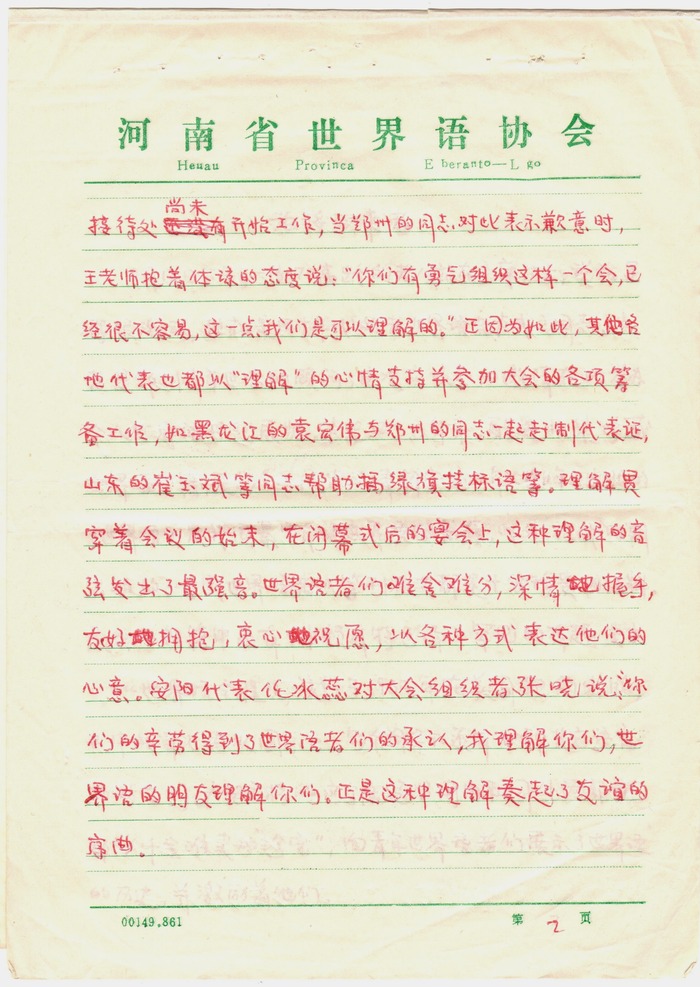 河南省世界语协会
Henau Provinca E beranto—L go
尚未
接待处还没有开始工作，当郑州的同志对此表示歉意时，
王老师抱着体谅的态度说：“你们有勇气组织这样一个会，已
经很不容易，这一点我们是可以理解的。”正因为如此，其他各
地代表也都以“理解”的心情支持并参加大会的各项筹
备工作，如黑龙江的袁宏伟与郑州的同志一起赶制代表证，
山东的崔玉斌等同志帮助插绿旗挂标语等。理解贯
穿着会议的始末，在闭幕式后的宴会上，这种理解的音
弦发出了最强音。世界语者们难舍难分，深情地握手，
友好地拥抱，衷心地祝愿，以各种方式表达他们的
心意。安阳代表任冰蕊对大会组织者张晓说：“你
们的辛劳得到了世界语者们的承认，我理解你们，世
界语的朋友理解你们。正是这种理解奏起了友谊的
序曲。
00149.861 第 2 页